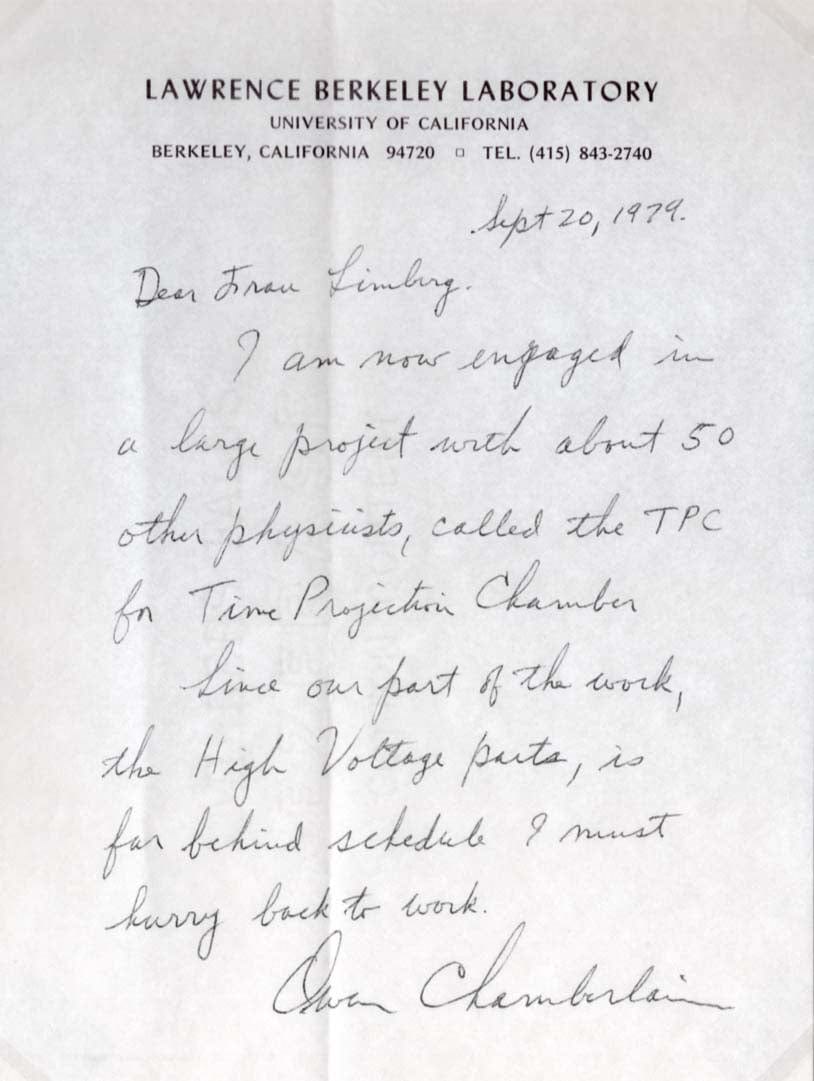 LAWRENCE BERKELEY LABORATORY
UNIVERSITY OF CALIFORNIA
BERKELEY, CALIFORNIA 94720 □ TEL. (415) 843-2740
Sept 20, 1979.
Dear Frau Limberg.
I am now engaged in
a large project with about 50
other physicists, called the TPC
for Time Projection Chamber
Since our part of the work,
the High Voltage parts, is
far behind schedule I must
hurry back to work.
Owen Chamberlain